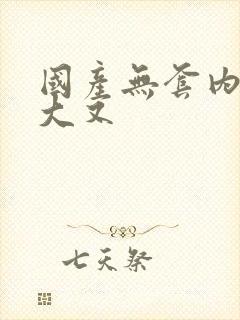 國產無套內
大又
七天祭